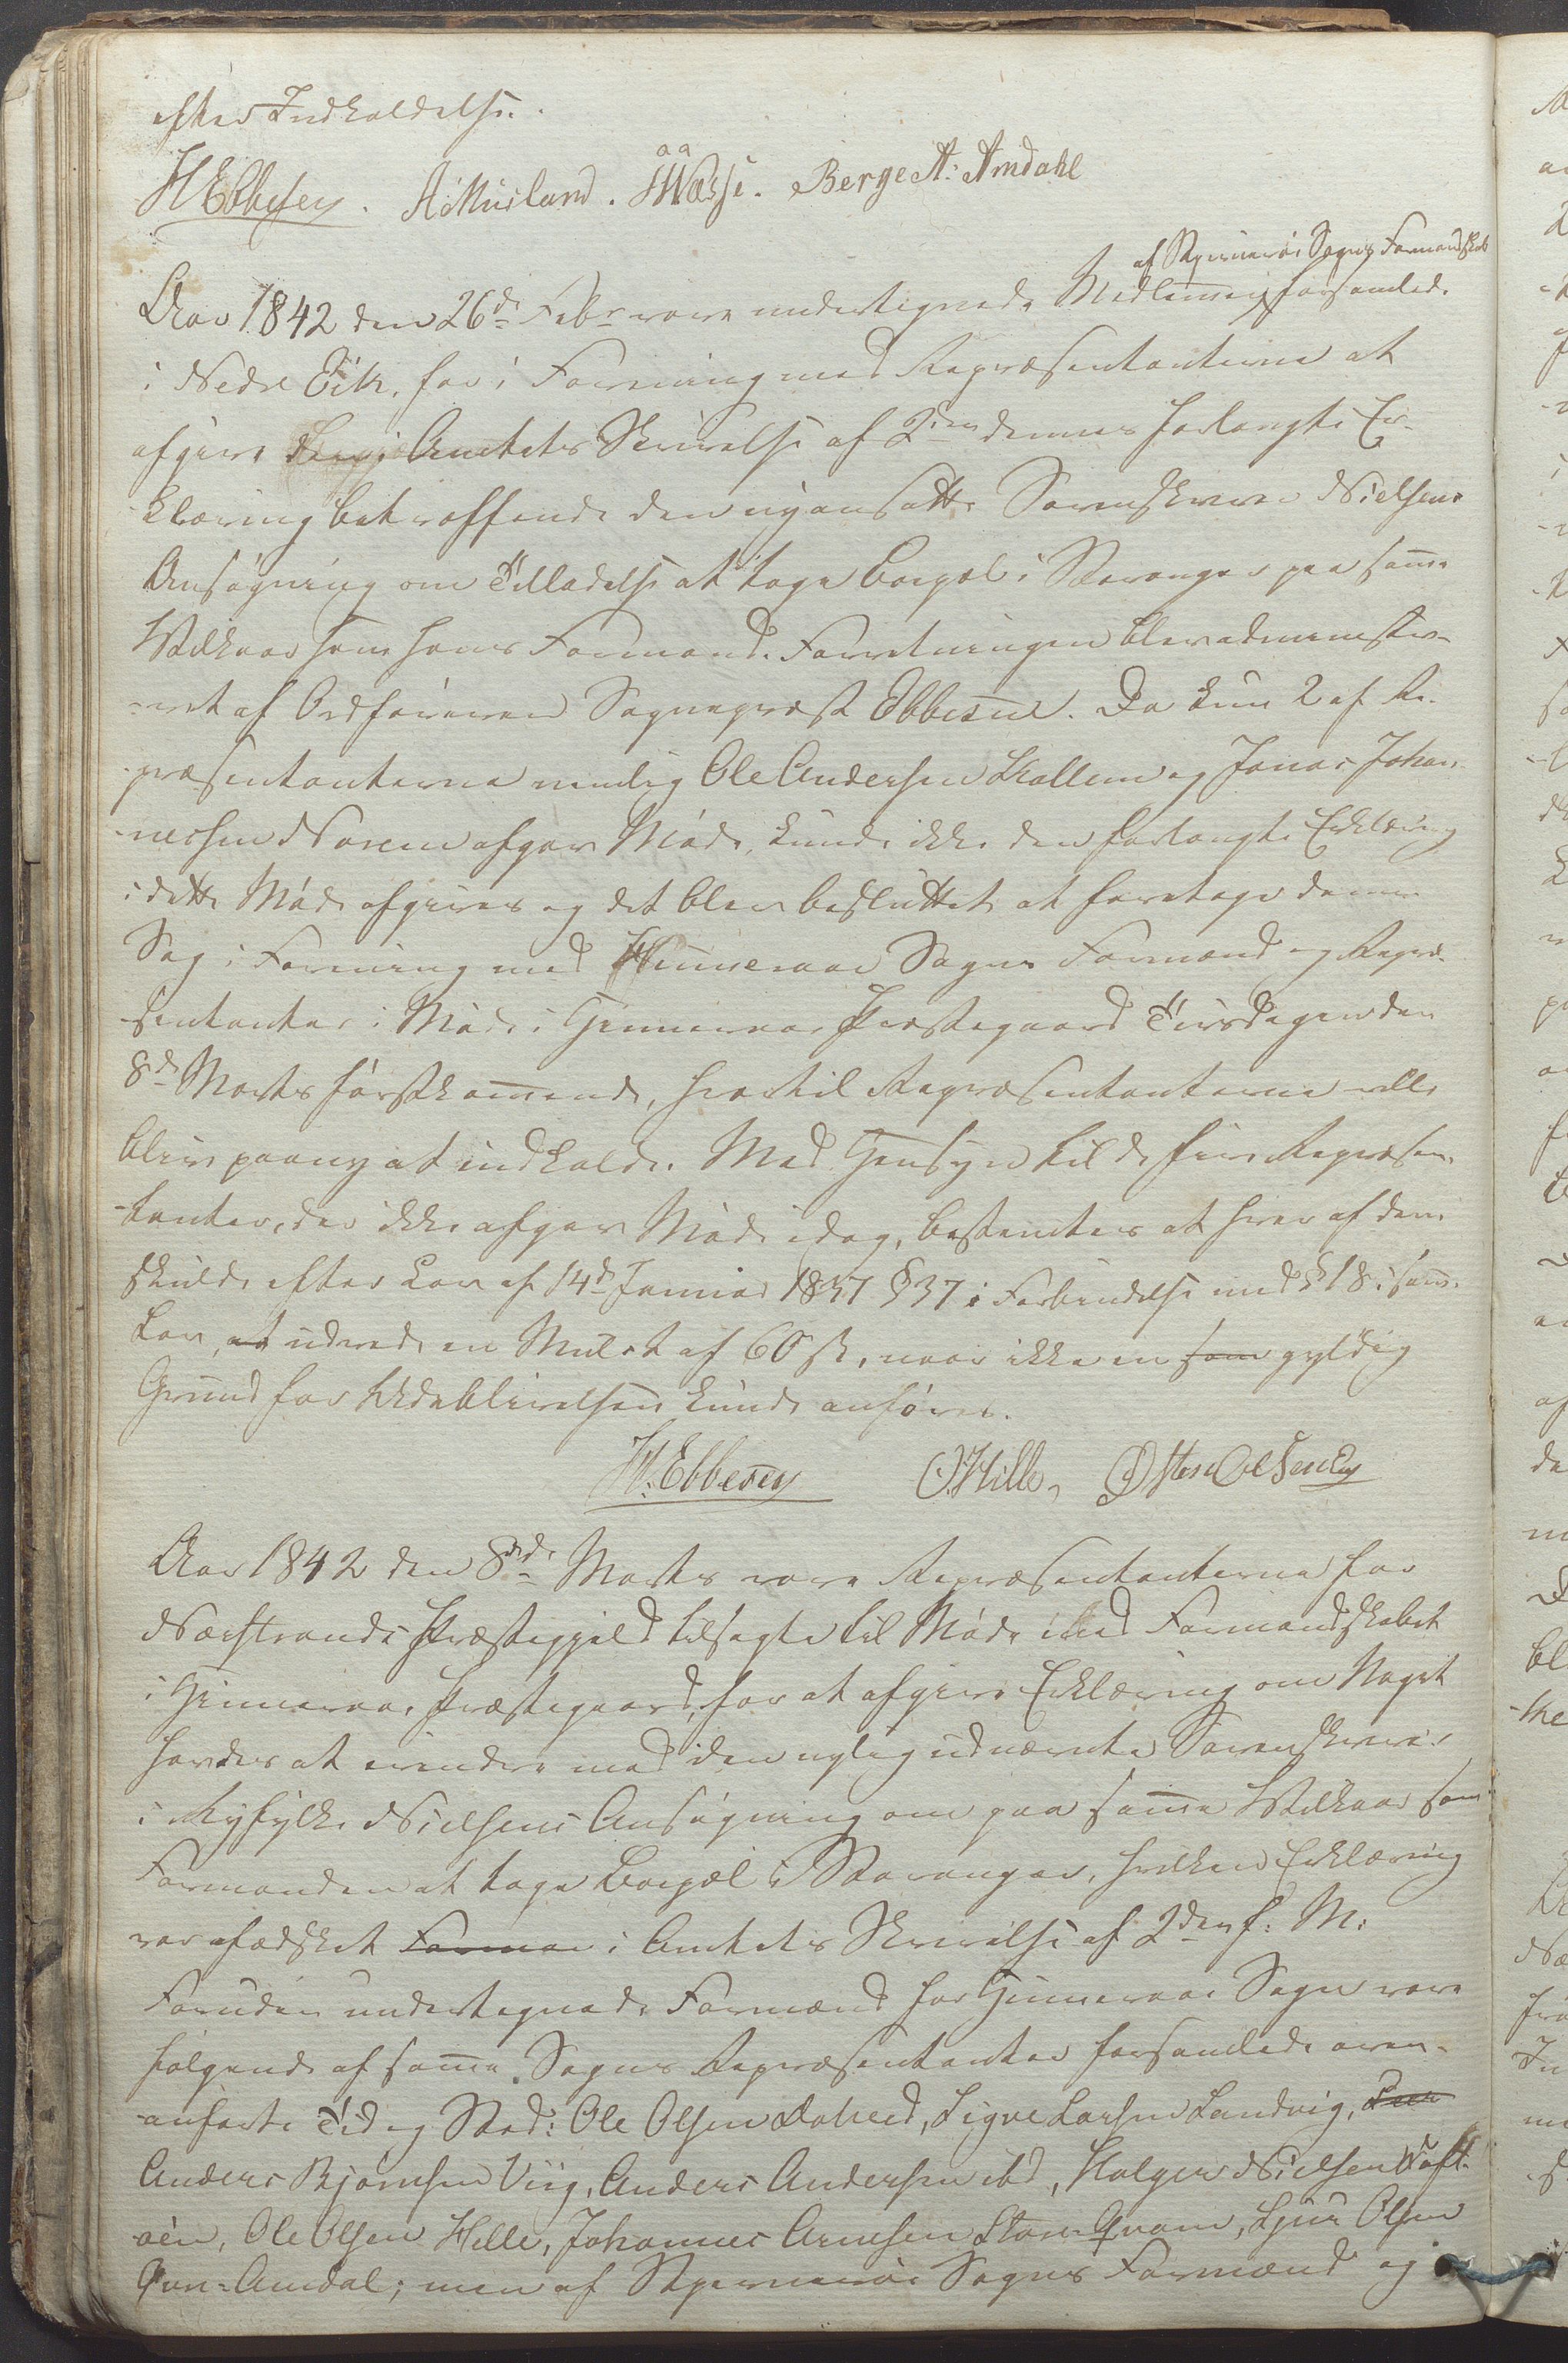 efter Indkaldelse.
HEbbesen. A. Musland. Wasse. Berge A: Amdahl
af Skjernerøe Sogns Formandskab
Aar 1842 den 26de Febr vare undertegnede Medlemmer forsamlede
i Nedre Eik, for i Forening med Repræsentanterne at
afgive den i Amtets Skrivelse af 2den dennes forlangte Er-
klæring betræffende den nyansatte Sorenskriver Nielsens
Ansøgning om Tilladelse at tage Boepæl i Stavanger paa samme
Vilkaar som hans Formand. Forretningen blev administre-
-ret af Ordføreren Sognepræst Ebbesen. Da kun 2 af Re-
præsentanterne nemlig Ole Andersen Hallem og Jonas Johan-
-nessen Norem afgav Møde, kunde ikke den forlangte Erklæring
i dette Møde afgives og det blev besluttet at foretage denne
Sag i Forening med Hinneraae Sogns Formænd og Repræ-
sentanter i Møde i Hinneraae Præstegaard Tirsdagen den
8de Marts førstkommende, hvortil Repræsentanterne ville
blive paany at indkalde. Med Hensyn til de fire Repræsen-
tanter, der ikke afgav Møde idag, bestemtes at hver af dem
skulde efter Lov af 14de Januar 1837 §37 i Forbindelse med §18 i samme
Lov, at udrede en Mulct af 60 ß, naar ikke en som gyldig
Grund for Udeblivelsen kunde anføres.
H. Ebbesen O. Hille Østen Olsen Eig
Aar 1842 den 8de Marts vare Repræsentanterne for
Nærstrands Præstegjeld tilsagte til Møde med Formandskabet
i Hinneraae Præstegaard, for at afgive Erklæring om Noget
havdes at erindre mod den nylig udnævnte Sorenskriver
i Ryfylke Nielsens Ansøgning om paa samme Vilkaar som
Formanden at tage Boepæl i Stavanger, hvilken Erklæring
var afæsket Forman i Amtets Skrivelse af 2den f: M:
Foruden undertegnede Formænd for Hinneraae Sogn vare
følgende af samme Sogns Repræsentanter forsamlede oven-
anførte Tid og Sted: Ole Olsen Dalved, Sigve Larsen Sandvig,
Anders Bjørnsen Viig, Anders Andersen ibd, Holger Nielsen Toft-
øen, Ole Olsen Helle, Johannes Arnesen Store-Qvam, Sjur Olsen
Øvre-Amdal; men af Skjernerøe Sogns Formænd og